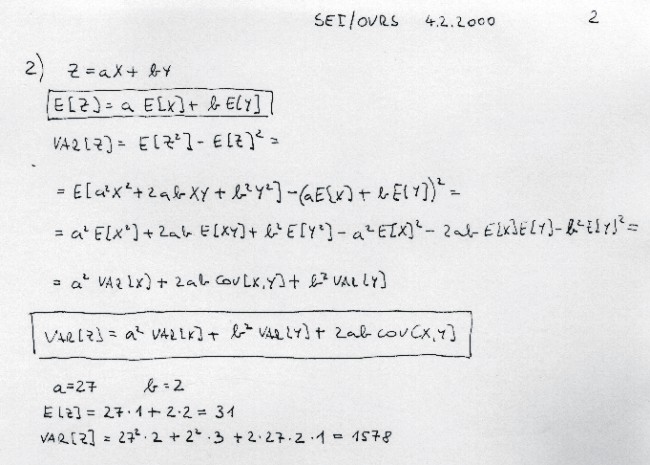 SEI/OVRS 4.2.2000 2
2) Z = aX + bY
E[Z] = a E[X] + b E[Y]
VAR[Z] = E[Z²] - E[Z]² =
= E[a²X² + 2ab XY + b²Y²] - (aE[X] + bE[Y])² =
= a² E[X²] + 2ab E[XY] + b² E[Y²] - a² E[X]² - 2ab E[X]E[Y] - b² E[Y]² =
= a² VAR[X] + 2ab COV[X,Y] + b² VAR[Y]
VAR[Z] = a² VAR[X] + b² VAR[Y] + 2ab COV[X,Y]
a=27 b=2
E[Z] = 27·1 + 2·2 = 31
VAR[Z] = 27²·2 + 2²·3 + 2·27·2·1 = 1578